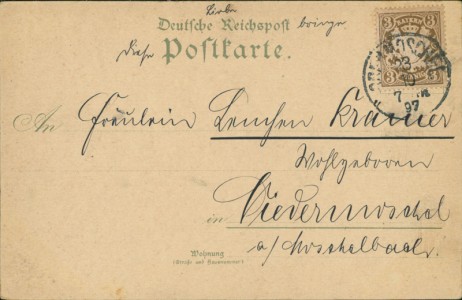 Liebe
Deutsche Reichspost bringe
diese Postkarte.
BAYERN
3 3
3 3
OBERMOSCHEL
23
10
7
97
An Fräulein Lenchen Krämer
Wohlgeboren
in Niedermoschel
a/ Moschelbach.
Wohnung
(Straße und Hausnummer)